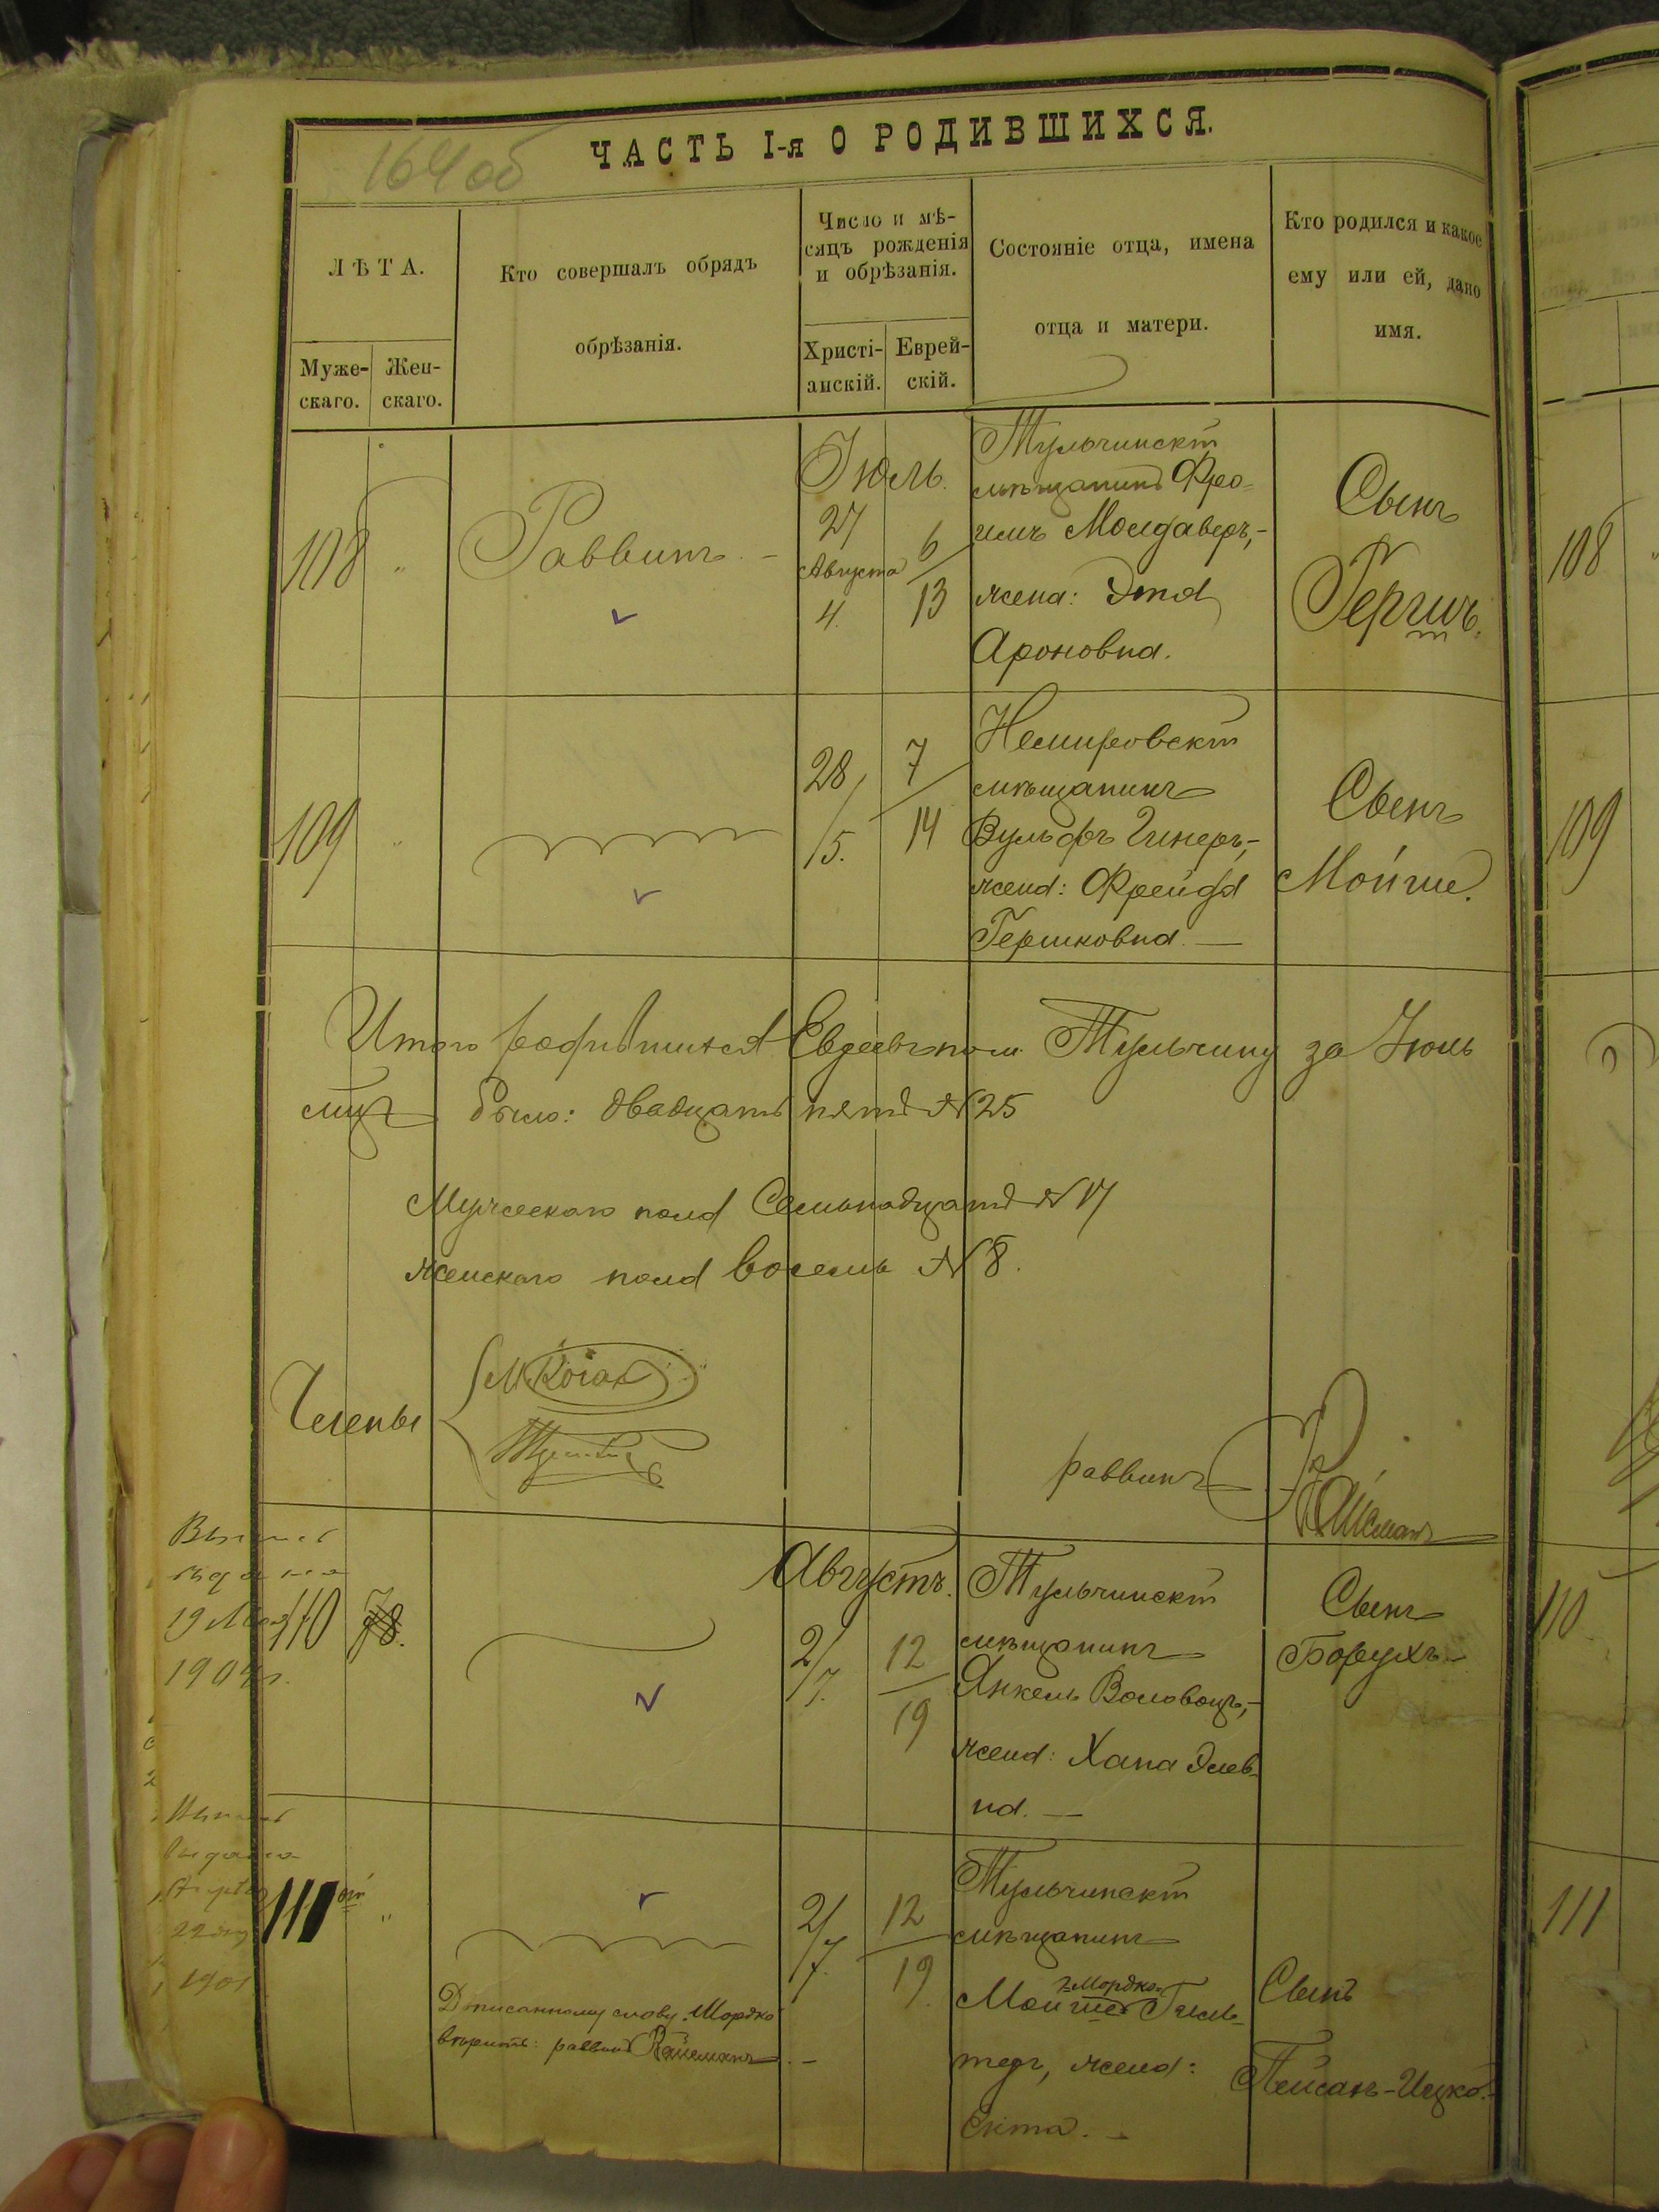 164 об
ЧАСТЬ I-я О РОДИВШИХСЯ.
ЛѢТА.
Муже-
скаго.
Жен-
скаго.
Кто совершалъ обрядъ
обрѣзанія.
Число и мѣ-
сяцъ рожденія
и обрѣзанія.
Христі-
анскій.
Еврей-
скій.
Состояніе отца, имена
отца и матери.
Кто родился и какое
ему или ей, дано
имя.
108
"
Раввинъ
Іюль.
27
Августа
4.
6
13
Тульчинскій
мѣщанинъ Фро-
имъ Молдаверъ,-
жена: Эта
Ароновна.
Сынъ
Гершъ.
108
109
"
28
5.
7
14
Немировскій
мѣщанинъ
Вульфъ Гинеръ,-
жена: Фрейда
Гершковна.
Сынъ
Мойше.
109
Итого родившихся Евреевъ по м. Тульчину за Іюль
мцъ было: двадцать пять №25
Мужескаго пола Семьнадцать №17
женскаго пола восемь №8.
Члены
М Коган
раввинъ
110
78.
Августъ.
2
7.
12
19
Тульчинскій
мѣщанинъ
Янкель Воловоцъ,-
жена: Хана Элев-
на.
Сынъ
Борухъ.
19 Мая
1904 г.
110
111
"
2
7.
12
19.
Тульчинскій
мѣщанинъ
Мордко
Мойше
жена:
Сынъ
Пейсахъ-Ицко.
выдана
1901
писанному слову Мордко
вѣрить: раввинъ
111